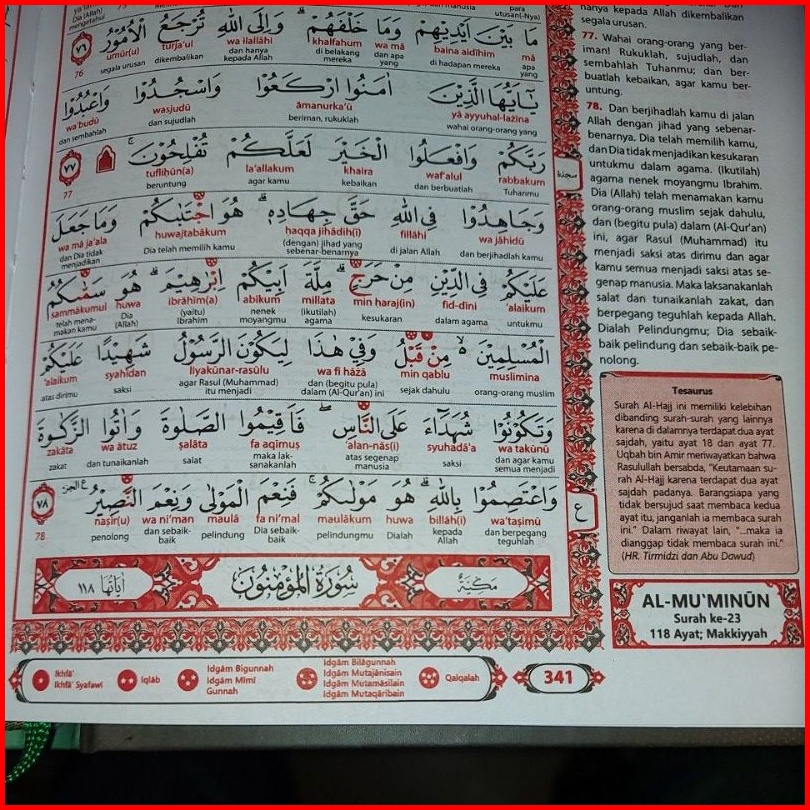 مَا بَيْنَ اَيْدِيْهِمْ وَمَا خَلْفَهُمْۗ وَاِلَى اللّٰهِ تُرْجَعُ الْاُمُوْرُ ٧٦
mā baina aidīhim wa mā khalfahum wa ilallāhi turja'ul umūr(u)
apa yang di hadapan mereka dan apa yang di belakang mereka dan hanya kepada Allah dikembalikan segala urusan 76
يٰٓاَيُّهَا الَّذِيْنَ اٰمَنُوا ارْكَعُوْا وَاسْجُدُوْا وَاعْبُدُوْا
yā ayyuhal-lażīna āmanurka'ū wasjudū wa'budū
wahai orang-orang yang beriman, rukuklah dan sujudlah dan sembahlah
رَبَّكُمْ وَافْعَلُوا الْخَيْرَ لَعَلَّكُمْ تُفْلِحُوْنَۚ ۩ ٧٧
rabbakum waf'alul khaira la'allakum tufliḥūn(a)
Tuhanmu dan berbuatlah kebaikan agar kamu beruntung 77
وَجَاهِدُوْا فِى اللّٰهِ حَقَّ جِهَادِهٖۗ هُوَ اجْتَبٰىكُمْ وَمَا جَعَلَ
wa jāhidū fillāhi ḥaqqa jihādih(ī) huwajtabākum wa mā ja'ala
dan berjihadlah kamu di jalan Allah (dengan) jihad yang sebenar-benarnya Dia telah memilih kamu dan Dia tidak menjadikan
عَلَيْكُمْ فِى الدِّيْنِ مِنْ حَرَجٍۗ مِلَّةَ اَبِيْكُمْ اِبْرٰهِيْمَۗ هُوَ سَمّٰىكُمُ
'alaikum fid-dīni min haraj(in) millata abīkum ibrāhīm(a) huwa sammākumul
untukmu dalam agama kesukaran (ikutilah) agama nenek moyangmu (yaitu) Ibrahim Dia (Allah) telah menamakan kamu
الْمُسْلِمِيْنَ ەۙ مِنْ قَبْلُ وَفِيْ هٰذَا لِيَكُوْنَ الرَّسُوْلُ شَهِيْدًا عَلَيْكُمْ
muslimīna min qablu wa fī hāżā liyakūnar-rasūlu syahīdan 'alaikum
orang-orang muslim sejak dahulu dan (begitu pula) dalam (Al-Qur'an) ini agar Rasul (Muhammad) itu menjadi saksi atas dirimu
وَتَكُوْنُوْا شُهَدَاۤءَ عَلَى النَّاسِۖ فَاَقِيْمُوا الصَّلٰوةَ وَاٰتُوا الزَّكٰوةَ
wa takūnū syuhadā'a 'alan-nās(i) fa aqīmuṣ ṣalāta wa ātuz zakāta
dan agar kamu semua menjadi saksi atas segenap manusia maka laksanakanlah salat dan tunaikanlah zakat
وَاعْتَصِمُوْا بِاللّٰهِۗ هُوَ مَوْلٰىكُمْۚ فَنِعْمَ الْمَوْلٰى وَنِعْمَ النَّصِيْرُ ٧٨
wa'taṣimū billāh(i) huwa maulākum fa ni'mal maulā wa ni'man naṣīr(u)
dan berpegang teguhlah kepada Allah Dialah pelindungmu Dia sebaik-baik pelindung dan sebaik-baik penolong 78
سجدة
ع
مَكِّيَّةٌ
سُوْرَةُ الْمُؤْمِنُوْنَ
اٰيَاتُهَا ١١٨
Ikhfā'
Ikhfā' Syafawī
Iqlāb
Idgām Bigunnah
Idgām Mimī
Gunnah
Idgām Bilāgunnah
Idgām Mutajānisain
Idgām Mutamāsilain
Idgām Mutaqāribain
Qalqalah
341
hanya kepada Allah dikembalikan
segala urusan.
77. Wahai orang-orang yang ber-
iman! Rukuklah, sujudlah, dan
sembahlah Tuhanmu; dan ber-
buatlah kebaikan, agar kamu ber-
untung.
78. Dan berjihadlah kamu di jalan
Allah dengan jihad yang sebenar-
benarnya. Dia telah memilih kamu,
dan Dia tidak menjadikan kesukaran
untukmu dalam agama. (Ikutilah)
agama nenek moyangmu Ibrahim.
Dia (Allah) telah menamakan kamu
orang-orang muslim sejak dahulu,
dan (begitu pula) dalam (Al-Qur'an)
ini, agar Rasul (Muhammad) itu
menjadi saksi atas dirimu dan agar
kamu semua menjadi saksi atas se-
genap manusia. Maka laksanakanlah
salat dan tunaikanlah zakat, dan
berpegang teguhlah kepada Allah.
Dialah Pelindungmu; Dia sebaik-
baik pelindung dan sebaik-baik pe-
nolong.
Tesaurus
Surah Al-Hajj ini memiliki kelebihan
dibanding surah-surah yang lainnya
karena di dalamnya terdapat dua ayat
sajdah, yaitu ayat 18 dan ayat 77.
Uqbah bin Amir meriwayatkan bahwa
Rasulullah bersabda, "Keutamaan su-
rah Al-Hajj karena terdapat dua ayat
sajdah padanya. Barangsiapa yang
tidak bersujud saat membaca kedua
ayat itu, janganlah ia membaca surah
ini." Dalam riwayat lain, "...maka ia
dianggap tidak membaca surah ini."
(HR. Tirmidzi dan Abu Dawud)
AL-MU'MINŪN
Surah ke-23
118 Ayat; Makkiyyah